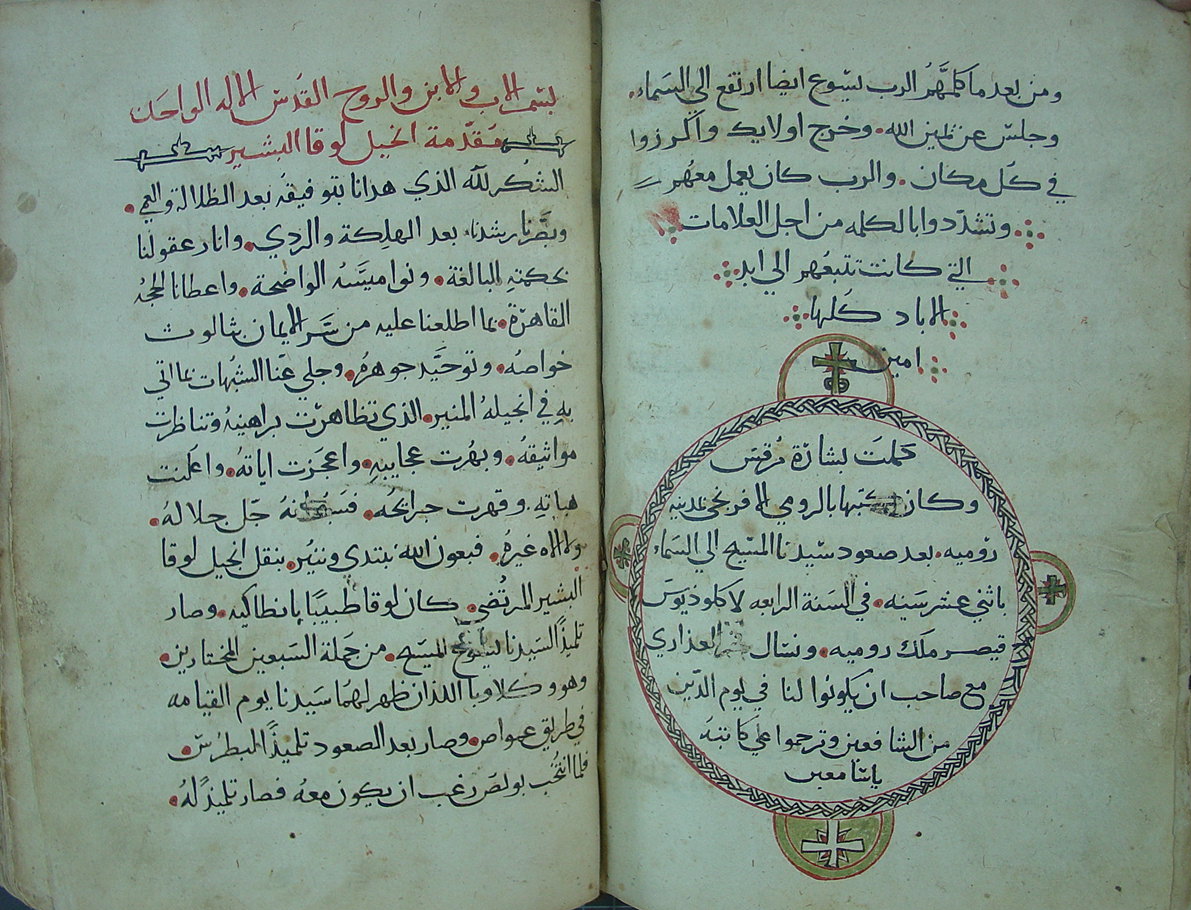 ومن بعد ما كلمهم الرب يسوع ايضا ارتفع الي السماء.
وجلس عن يمين الله. وخرج اولايك واكرزوا
في كل مكان. والرب كان يعمل معهم
وتشددوا بالكلمه من اجل العلامات
التي كانت تتبعهم الي ابد
الاباد كلها
امين
كملت بشارة مرقس
وكان كتبها بالرومي الافرنجي بمدينه
روميه. بعد صعود سيدنا المسيح الي السماء
باثني عشر سنه. في السنة الرابعه لاكلوديوس
قيصر ملك روميه. ونسال العذاري
مع صاحب ان يكونوا لنا في يوم الدين
من الشافعين وترحموا علي كاتبه
ياسامعين
بسم الاب والابن والروح القدس الاله الواحد
مقدمة انجيل لوقا البشير
الشكر لله الذي هدانا بتوفيقه بعد الظلالة والعمي.
وبصرنا رشدنا، بعد الهلكة والردي. وانار عقولنا
بحكمته البالغة. ونواميسه الواضحة. واعطانا الحجه
القاهرة. بما اطلعنا عليه من سر الايمان بثالوث
خواصه. وتوحيد جوهره. وجلي عنا الشبهات بما اتي
به في انجيله المنير. الذي تظاهرت براهينه وتناظرت
مواثيقه. وبهرت عجايبه. واعجزت اياته. واعلنت
هباته. وقهرت جرايحه. فسبحانه جل جلاله.
ولا اله غيره. فبعون الله نبتدي وننير. بنقل انجيل لوقا
البشير المرتضي. كان لوقا طبيبا بانطاكيه. وصار
تلميذا لسيدنا يسوع المسيح. من جملة السبعين المختارين.
وهو وكلاوبا اللذان ظهر لهما سيدنا يوم القيامه
في طريق عمواص. وصار بعد الصعود تلميذا لبطرس.
فلما انتخب بولص رغب ان يكون معه فصار تلميذ له.